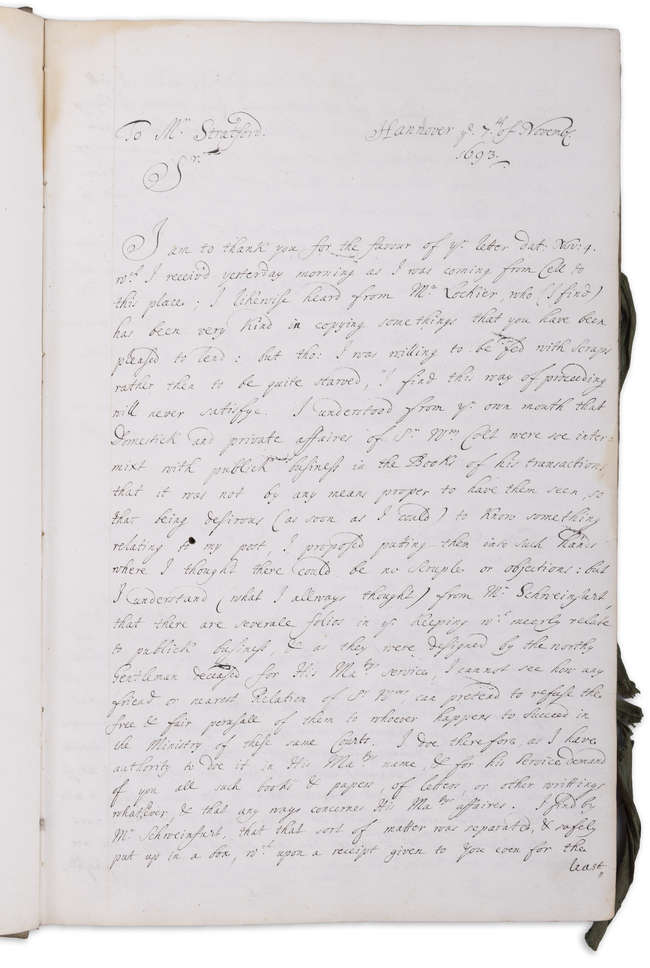 To Mr. Stratford.
Hannover ye. 7th of Novembr
1693.
Sr.
I am to thank you for the favour of yr. letter dat. Nov: 4.
wch. I receiv'd yesterday morning as I was coming from Cell to
this place; I likewise heard from Mr. Lockier, who (I find)
has been very kind in copying some things that you have been
pleased to lend: but tho: I was willing to be fed with scraps
rather then to be quite starved, I find this way of proceeding
will never satisfye. I understood from yr. own mouth that
Domestick and private affaires of Sr. Wm. Colt were soe inter=
mixt with publick business in the Books of his transactions,
that it was not by any means proper to have them seen, so
that being desirous (as soon as I could) to know something
relating to my post, I proposed putting them into such hands
where I thought there could be no scruple or objections: but
I understand (what I allways thought) from Mr. Schweinfurt,
that there are severall folios in yr. keeping wch. meerly relate
to publick business, & as they were designed by the worthy
Gentleman deceased for His Matys. service, I cannot see how any
friend or nearest Relation of Sr. Wms. can pretend to refuse the
free & fair perusall of them to whoever happens to succeed in
the Ministry of these same Courts. I doe therefore, as I have
authority to doe it in His Matys. name, & for his service demand
of you all such books & papers, of letters, or other writtings
whatever, & that any ways concernes His Matys. affaires. I find by
Mr. Schweinfurt, that that sort of matter was separated, & safely
put up in a box, wch. upon a receipt given to You even for the
least